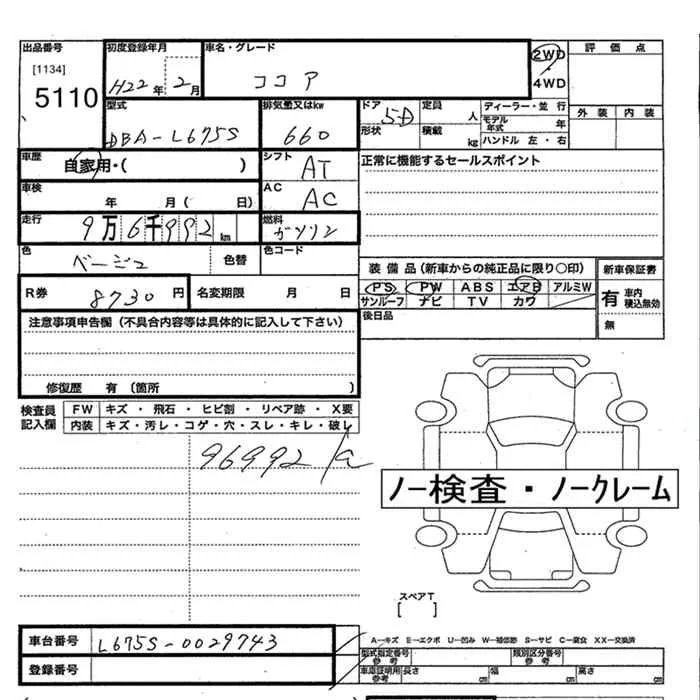 出品番号 初度登録年月 車名・グレード 2WD 評価点
[1134] H22年 2月 ココア 4WD
5110
型式 排気量又はkw ドア 5D 定員 人 ディーラー・並行 外装 内装
DBA-L675S 660 形状 積載 kg モデル年式 年
ハンドル 左・右
車歴 自家用・( ) シフト AT 正常に機能するセールスポイント
車検 年 月( 日) AC AC
走行 9万6千992km 燃料 ガソリン
色 ベージュ 色替 色コード
装備品(新車からの純正品に限り〇印) 新車保証書
R券 8730円 名変期限 月 日 PS PW ABS エアB アルミW 有 車内積込無効
サンルーフ ナビ TV カワ
注意事項申告欄(不具合内容等は具体的に記入して下さい) 後日品 無
修復歴 有(箇所 )
検査員記入欄 FW キズ・飛石・ヒビ割・リペア跡・X要
内装 キズ・汚レ・コゲ・穴・スレ・キレ・破レ
96992
ノー検査・ノークレーム
スペアT
[ ]
車台番号 L675S-0029743 A―キズ E―エクボ U―凹み W―補修跡 S―サビ C―腐食 XX―交換済
型式指定番号 参考 類別区分番号 参考
登録番号 車庫証明用参考 長さ cm 幅 cm 高さ cm